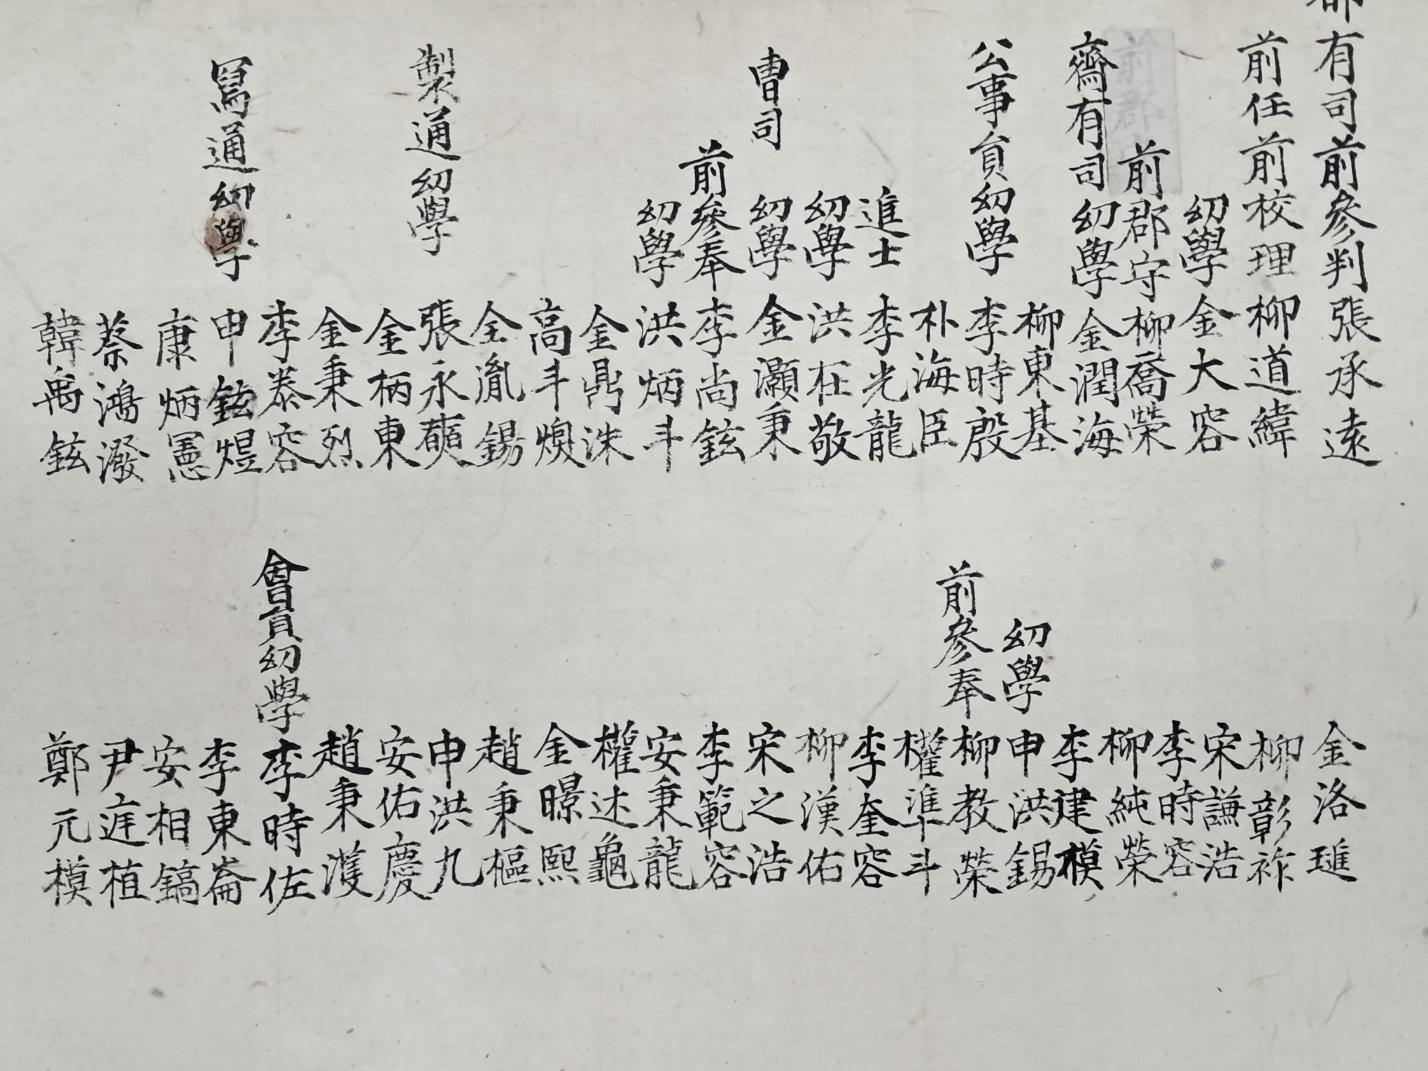 都有司前參判張承遠
前任前校理柳道緯
幼學金大容
前郡守柳喬榮
齋有司幼學金潤海
柳東基
公事員幼學李時殷
朴海臣
進士李光龍
幼學洪在敬
曹司幼學金灝秉
前參奉李尚鉉
幼學洪炳斗
金鼎洙
高斗煥
全胤錫
製通幼學張永奭
金柄東
金秉烈
李泰容
寫通幼學申鉉焜
康炳
蔡鴻潑
韓禹鉉
金洛
柳彰祚
宋謙浩
李時容
柳純榮
李建模
幼學申洪錫
前參奉柳教榮
權準斗
李奎容
柳漢佑
宋之浩
李範容
安秉龍
權述龜
金暻熙
趙秉樞
申洪九
安佑慶
趙秉濩
會員幼學李時佐
李東崙
安相鎬
尹寔植
鄭元模